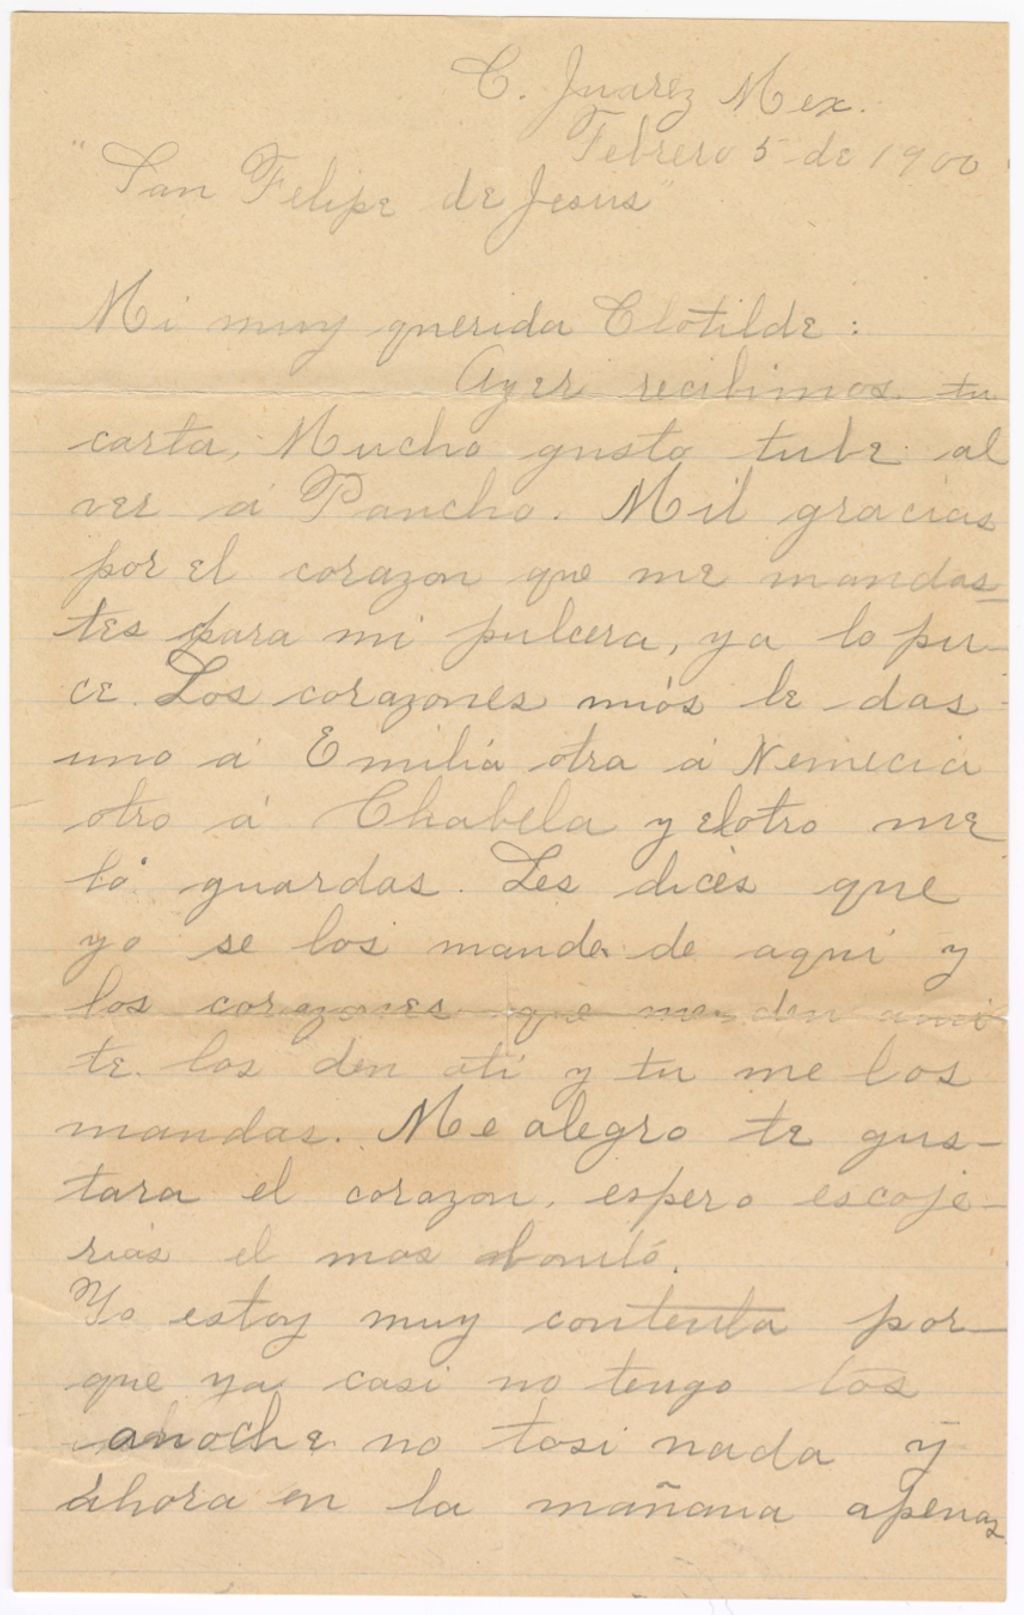 C. Juarez Mex.
Febrero 5 de 1900
"San Felipe de Jesus"
Mi muy querida Clotilde:
Ayer recibimos tu
carta, Mucho gusto tube al
ver á Pancho. Mil gracias
por el corazon que me mandas-
tes para mi pulcera, ya lo pu-
ce. Los corazones miós le das
uno á Emiliá otra á Nemecia
otro á Chabela y el otro me
lo guardas. Les dices que
yo se los mande de aquí y
los corazones que me den ami
te los den ati y tu me los
mandas. Me alegro te gus-
tara el corazon, espero escoje-
rias el mas bonito.
Yo estoy muy contenta por-
que ya casi no tengo tos
anoche no tosi nada y
ahora en la mañana apenas